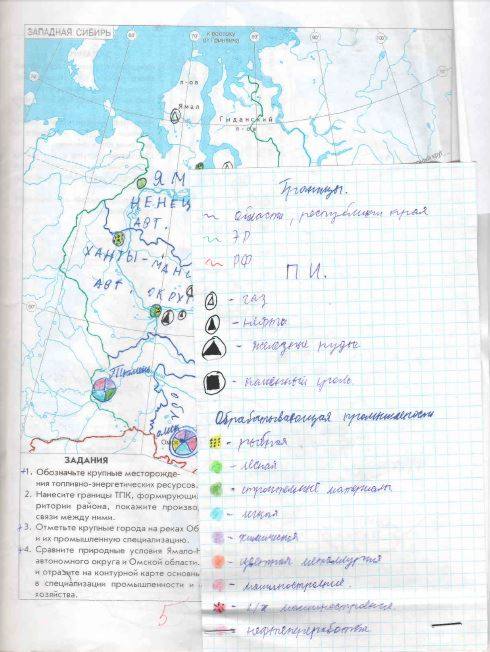 ЗАПАДНАЯ СИБИРЬ
60°
70°
к востоку
от Гринвича
80°
90°
100°
70°
п-ов
Ямал
Гыданский
п-ов
ЯМ
НЕНЕЦ
АВТ.
ХАНТЫ-МАН
АВТ
ОКРУГ
Тюмень
ОМС
Границы.
~ области, республики края
~ ЭР
~ РФ
П И.
- газ
- нефть
- железные руды
- каменный уголь
Обрабатывающая промышленность
- рыбная
- лесная
- строительные материалы
- лёгкая
- химическая
- цветная металлургия
- машиностроение.
- с/х машиностроение
- нефтепереработка
ЗАДАНИЯ
+1. Обозначьте крупные месторожде-
ния топливно-энергетических ресурсов.
2. Нанесите границы ТПК, формирующи
ритории района, покажите произво
связи между ними.
+3. Отметьте крупные города на реках Об
и их промышленную специализацию.
+4. Сравните природные условия Ямало-Н
автономного округа и Омской области.
и отразите на контурной карте основны
в специализации промышленности и
хозяйства.
5